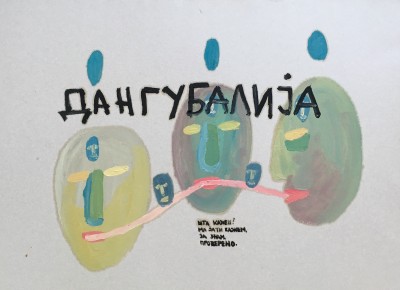 ДАНГУБАЛИЈА
ШТА КАЖЕШ!
МА ЈА ТИ КАЖЕМ,
ЈА ЗНАМ,
ПРОВЕРЕНО.